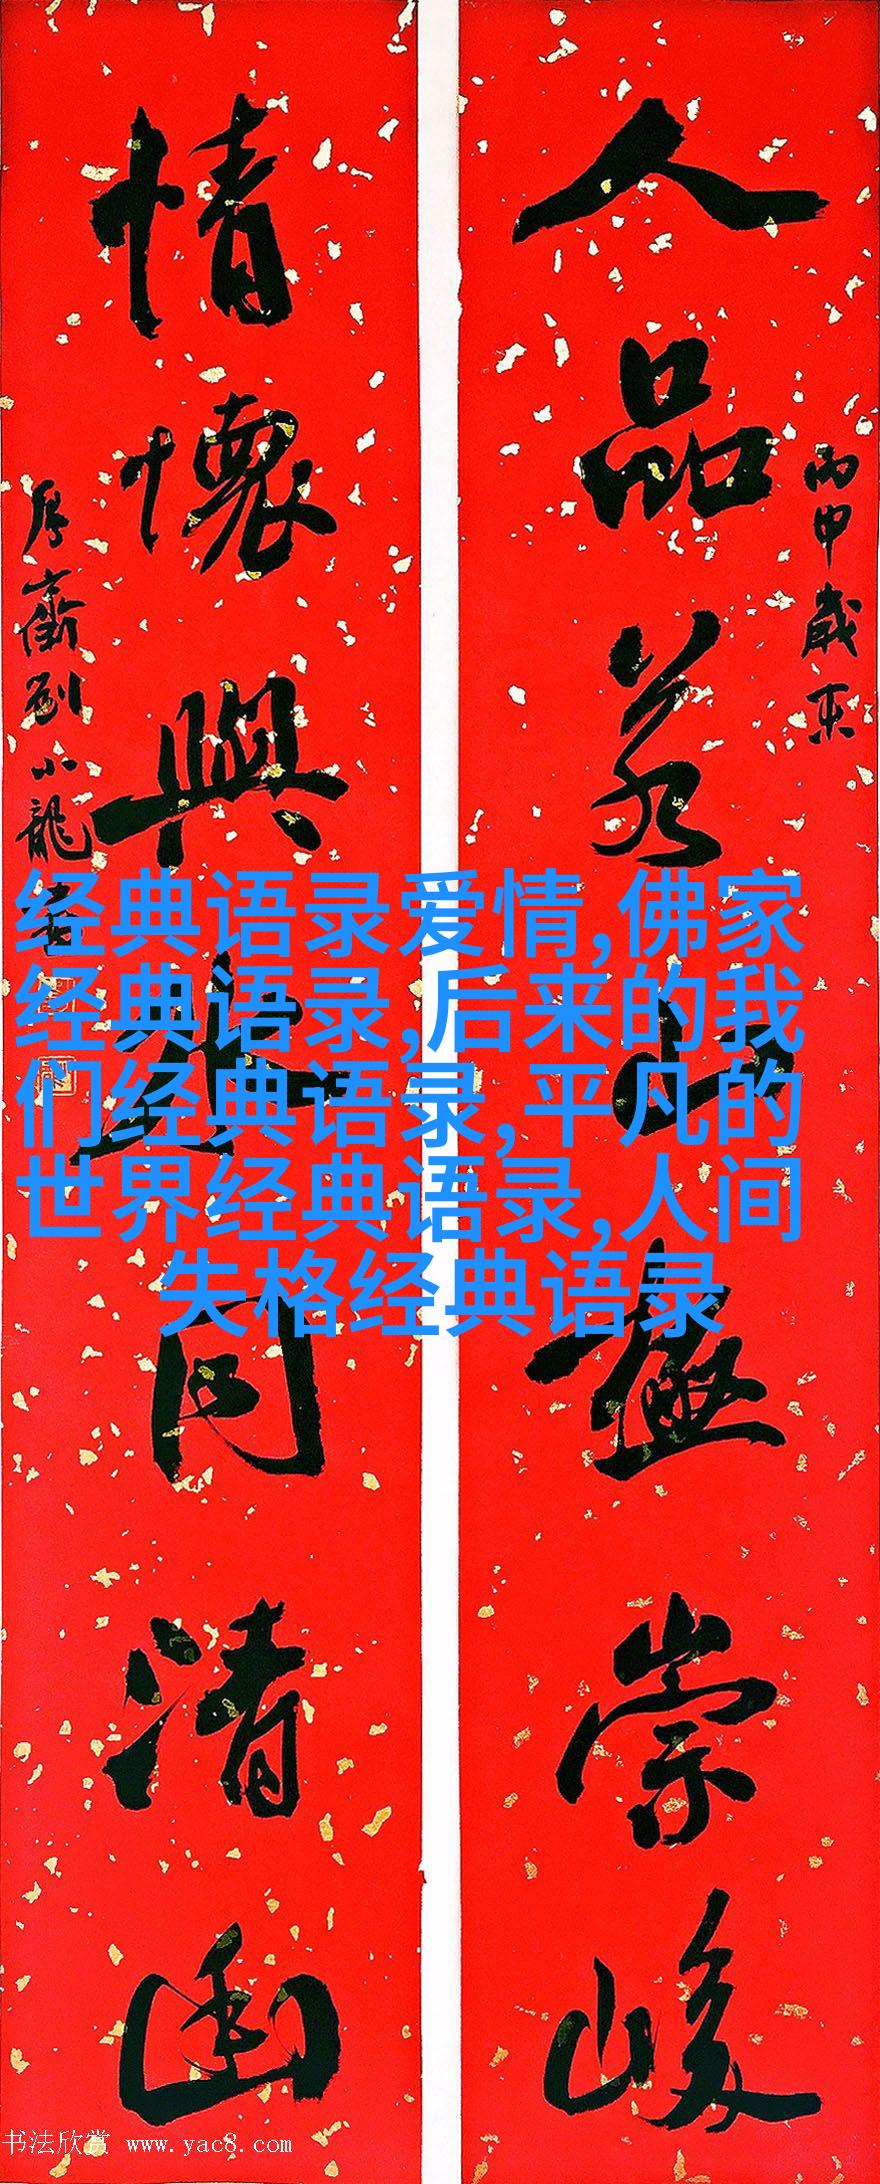 人品若山極崇峻
丙申歲
情懷與水同清幽
厚齋劉小龍書
经典语录爱情,佛家
经典语录,后来的我
们经典语录,平凡的
世界经典语录,人间
失格经典语录
书法欣赏 www.yac8.com